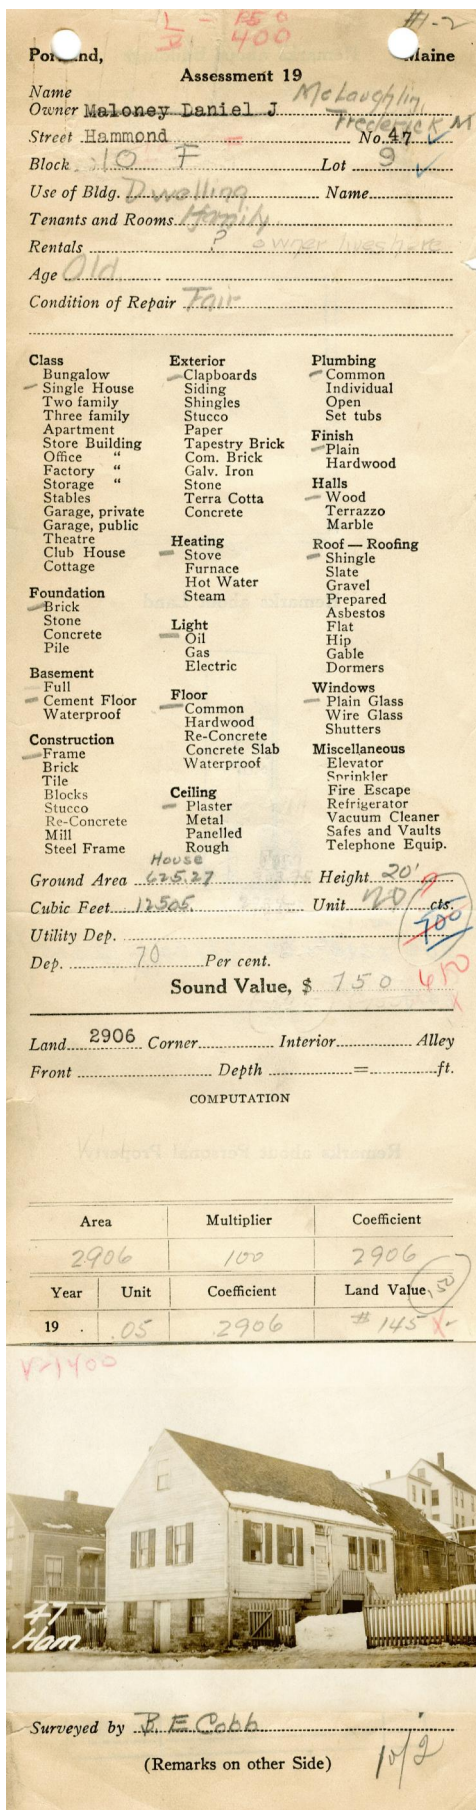 L - 850
B 400
#1-2
Portland, Maine
Assessment 19
Name
McLaughlin,
Owner Maloney Daniel J Frederick M
Street Hammond No. 47
Block 10 F Lot 9
Use of Bldg. Dwelling Name
Tenants and Rooms 1 family
Rentals ? owner lives here
Age Old
Condition of Repair Fair
Class
Bungalow
Single House
Two family
Three family
Apartment
Store Building
Office "
Factory "
Storage "
Stables
Garage, private
Garage, public
Theatre
Club House
Cottage
Foundation
Brick
Stone
Concrete
Pile
Basement
Full
Cement Floor
Waterproof
Construction
Frame
Brick
Tile
Blocks
Stucco
Re-Concrete
Mill
Steel Frame
Exterior
Clapboards
Siding
Shingles
Stucco
Paper
Tapestry Brick
Com. Brick
Galv. Iron
Stone
Terra Cotta
Concrete
Heating
Stove
Furnace
Hot Water
Steam
Light
Oil
Gas
Electric
Floor
Common
Hardwood
Re-Concrete
Concrete Slab
Waterproof
Ceiling
Plaster
Metal
Panelled
Rough
Plumbing
Common
Individual
Open
Set tubs
Finish
Plain
Hardwood
Halls
Wood
Terrazzo
Marble
Roof — Roofing
Shingle
Slate
Gravel
Prepared
Asbestos
Flat
Hip
Gable
Dormers
Windows
Plain Glass
Wire Glass
Shutters
Miscellaneous
Elevator
Sprinkler
Fire Escape
Refrigerator
Vacuum Cleaner
Safes and Vaults
Telephone Equip.
House
Ground Area 625.27 Height 20'
Cubic Feet 12505 Unit 20 cts.
700
Utility Dep.
Dep. 70 Per cent.
650
Sound Value, $ 750
Land 2906 Corner Interior Alley
Front Depth = ft.
COMPUTATION
Area Multiplier Coefficient
2906 100 2906
Year Unit Coefficient Land Value
150
19 .05 2906 # 145 X
1400
47
Ham
Surveyed by B. E. Cobb
(Remarks on other Side)
10/2